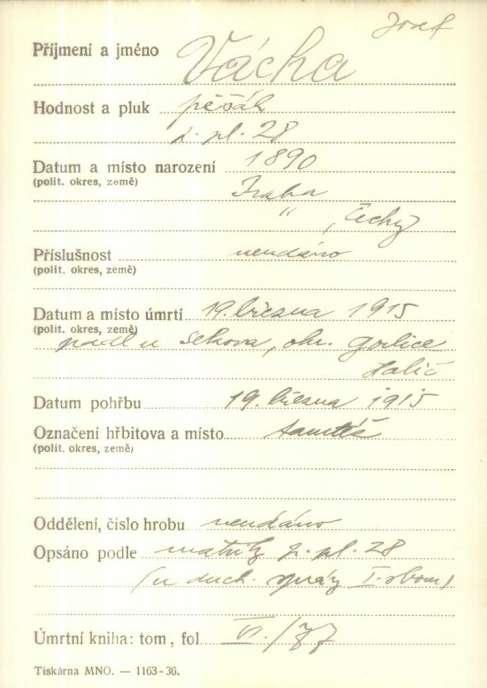 Josef
Příjmení a jméno Vácha
Hodnost a pluk pěšák
p. pl. 28
Datum a místo narození 1890
(polit. okres, země) Praha
" , Čechy
Příslušnost neudáno
(polit. okres, země)
Datum a místo úmrtí 19. března 1915
(polit. okres, země)
padl u Sekova, okr. Gorlice
Halič
Datum pohřbu 19. března 1915
Označení hřbitova a místo tamtéž
(polit. okres, země)
Oddělení, číslo hrobu neudáno
Opsáno podle matriky p. pl. 28
(u duch. správy I. sboru)
Úmrtní kniha: tom, fol VI./77
Tiskárna MNO. — 1163-36.